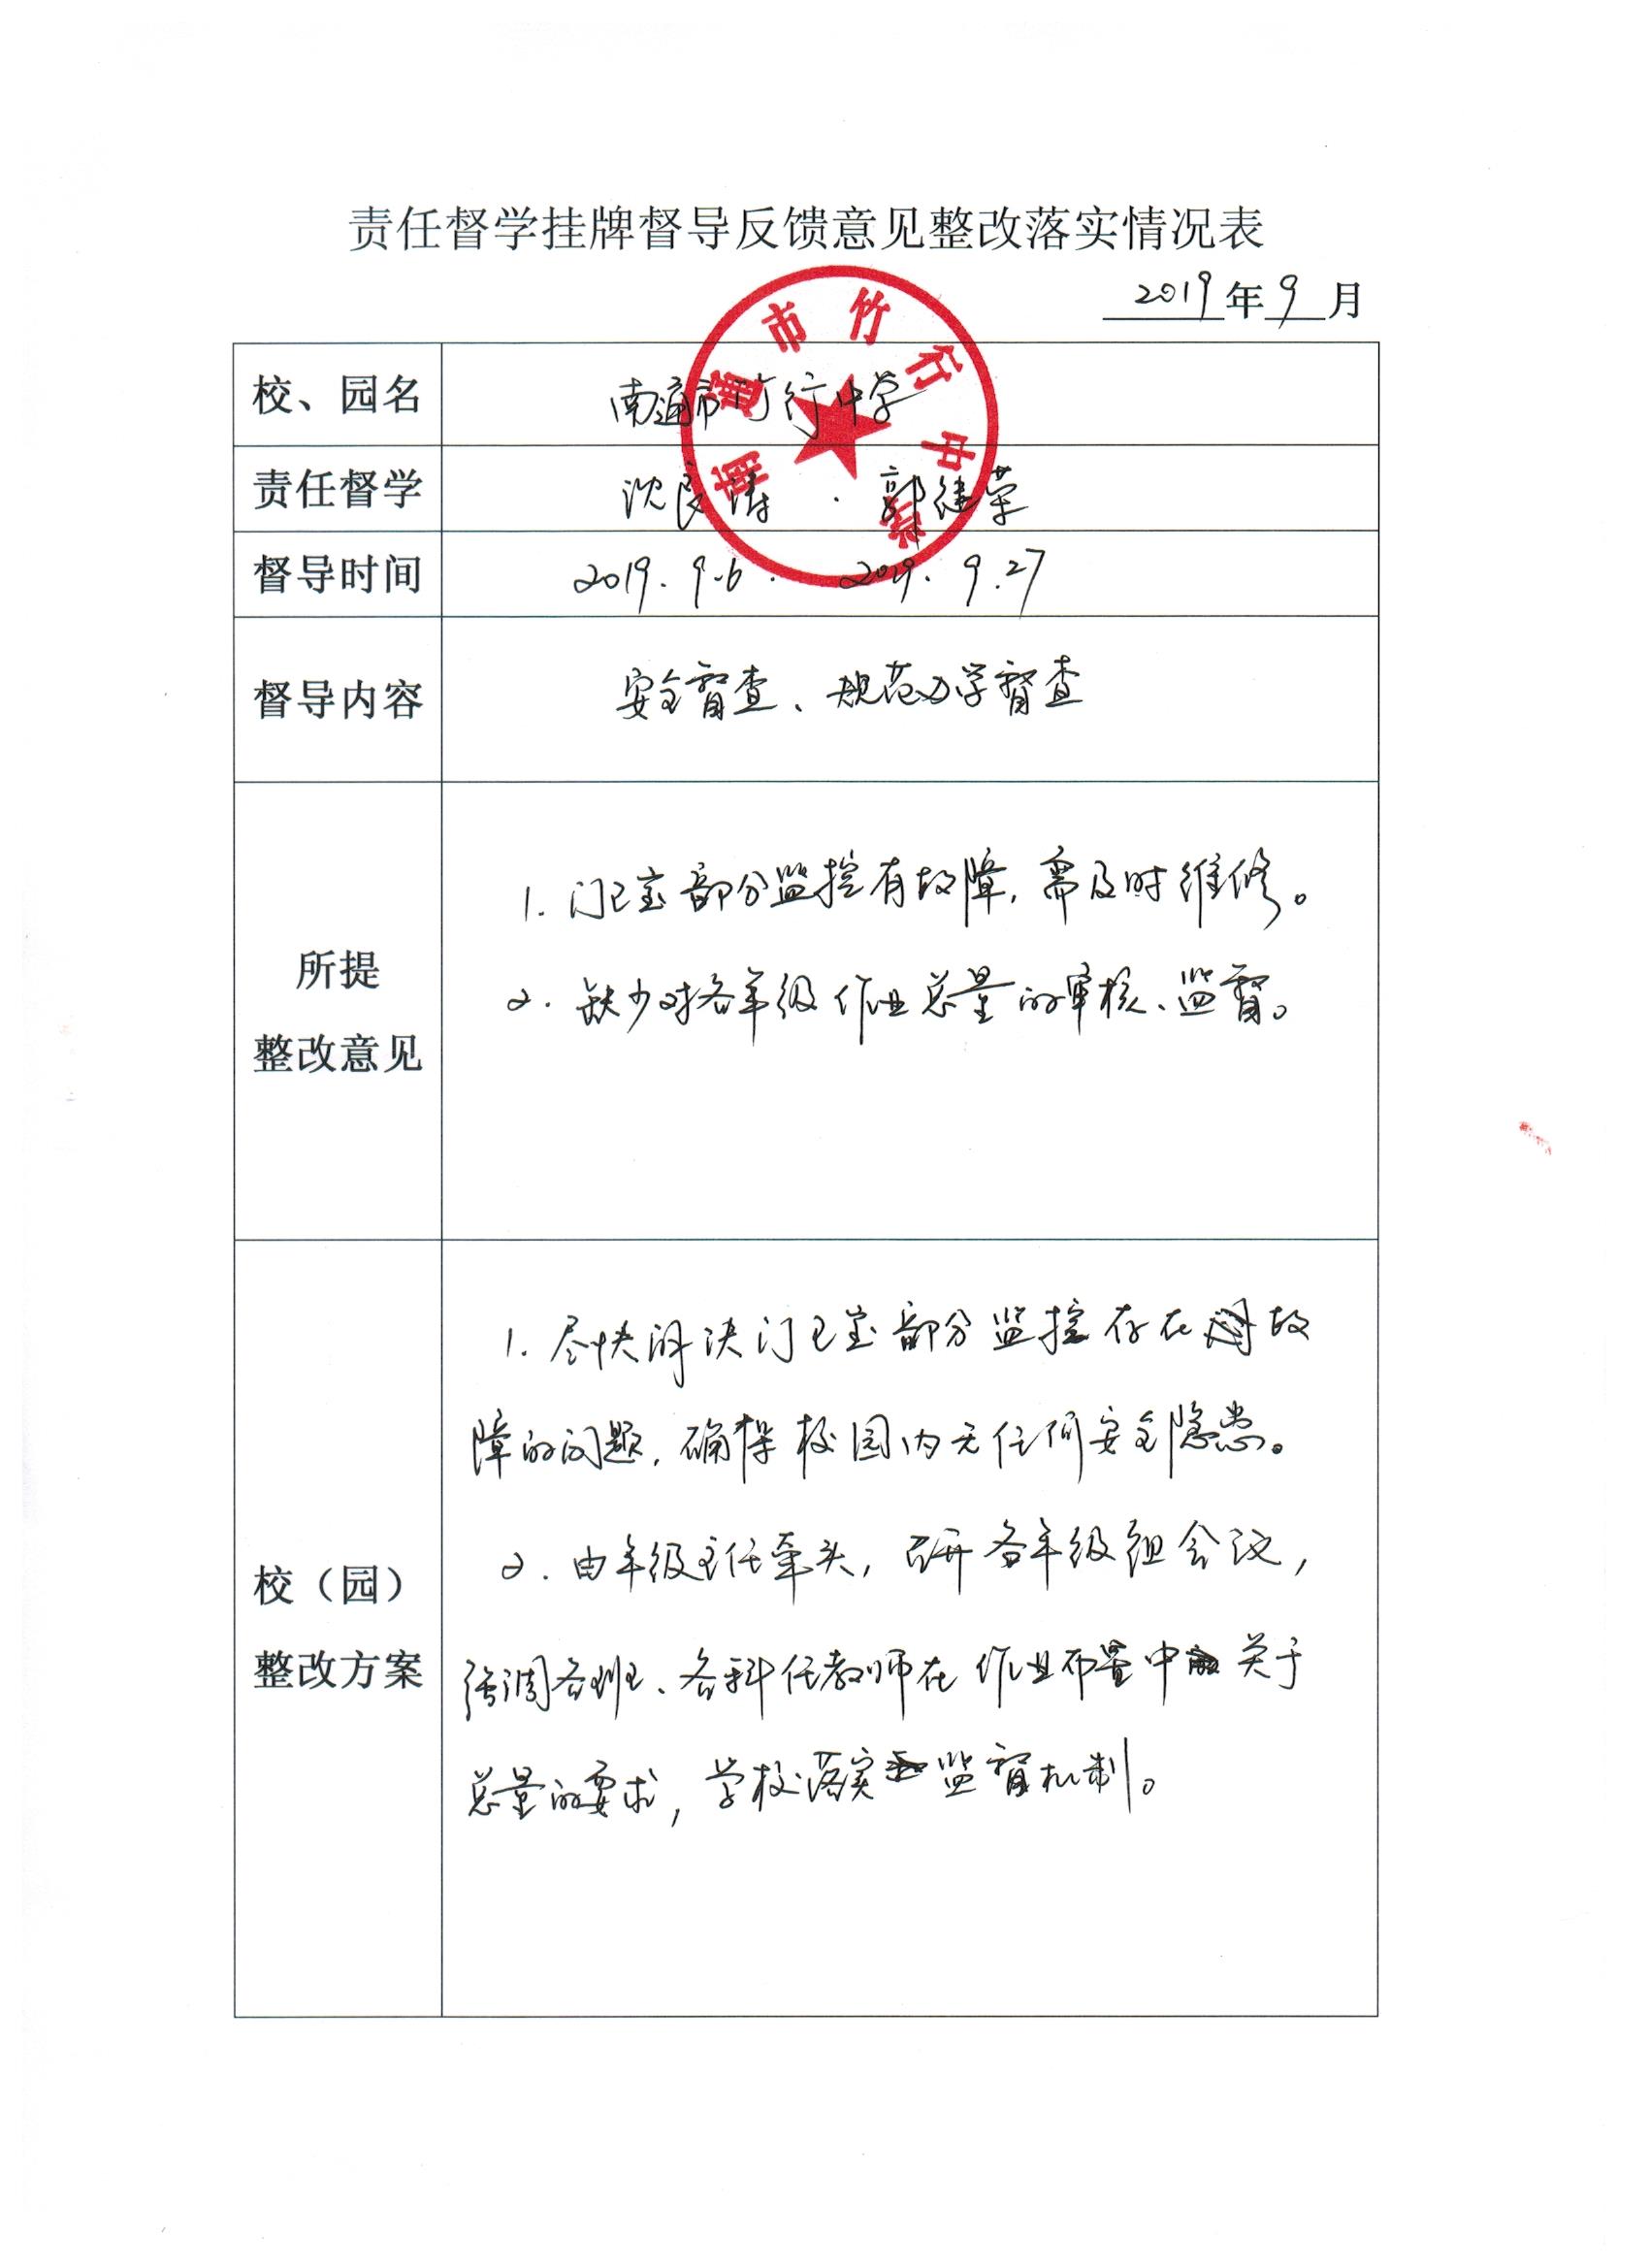 责任督学挂牌督导反馈意见整改落实情况表
2019年9月
校、园名 南通市竹行中学
南通市竹行中学
责任督学 沈良涛 . 郭继荣
督导时间 2019.9.6. 2019.9.27
督导内容 安全督查、规范办学督查
所提
整改意见
1. 门卫室部分监控有故障,需及时维修。
2. 缺少对各年级作业总量的审核、监督。
校（园）
整改方案
1. 尽快解决门卫室部分监控存在故
障的问题,确保校园内无任何安全隐患。
2. 由年级主任牵头,召开各年级组会议,
强调各班、各科任教师在作业布置中关于
总量的要求,学校落实监督机制。